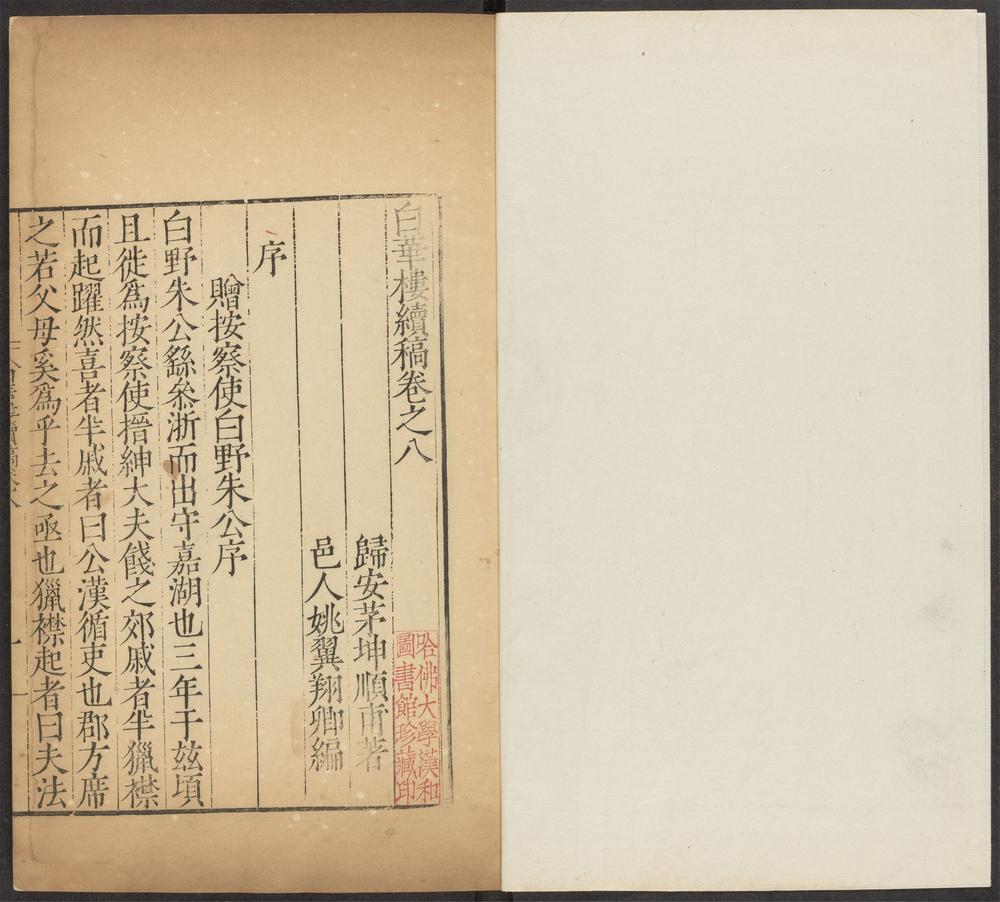 白華樓續稿卷之八
歸安茅坤順甫著
邑人姚翼翔卿編
序
贈按察使白野朱公序
白野朱公繇叅浙而出守嘉湖也三年于玆頃
且徙爲按察使搢紳大夫餞之郊戚者半獵襟
而起躍然喜者半戚者曰公漢循吏也郡方席
之若父母奚爲乎去之亟也獵襟起者曰夫法
哈佛大學漢和
圖書館珍藏印